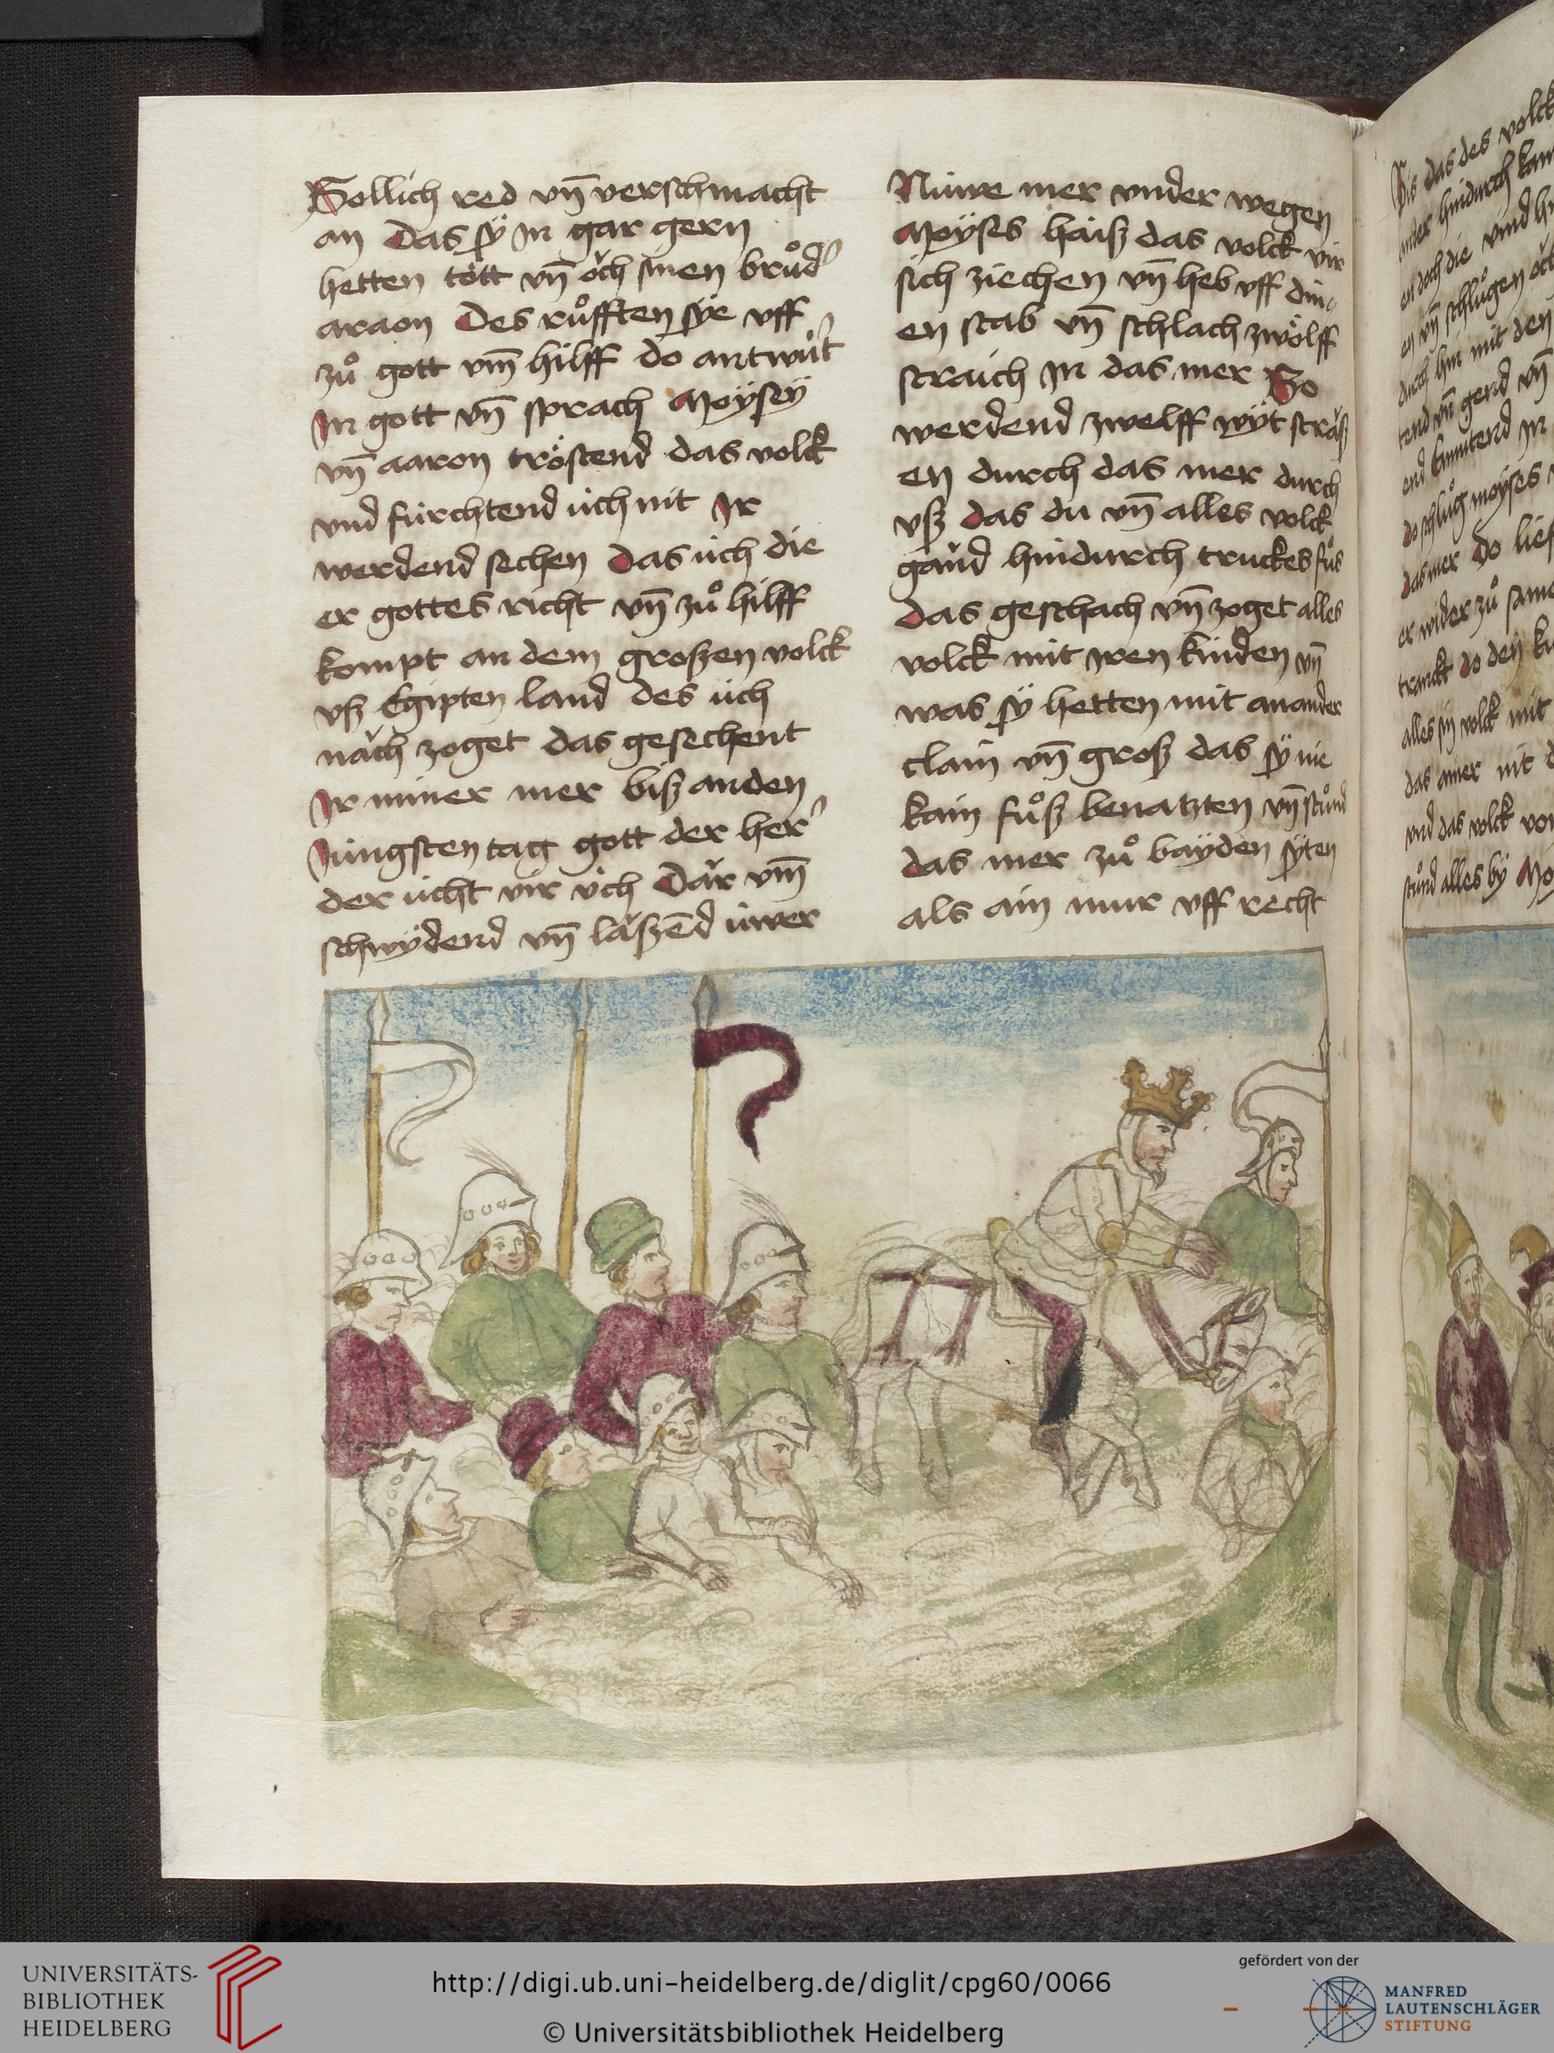 Sollich red vn̄ verschmacht
an Das sÿ In gar gern
hetten tött vn̄ öch sinen brůd'
araon Des růfften sÿe vff
zů gott vm̄ hilff do antwu̓rt
In gott vn̄ sprach Moÿseÿ
vn̄ aaron tröstend das volck
vnd fürchtend üch nit Ir
werdend sechen Das üch die
er gottes richt vn̄ zů hilff
kompt an dem großen volck
vß Egipten land des üch
nǎch zoget das gesechent
Ir nimer mer biß an den
Jüngsten tag gott der her'
der ücht vir üch Dǎr vm̄
schwÿdend vn̄ lǎßēd üwer
Nüwe mer vnder wegen
Moÿses haiß das volck vir
sich ziechen vn̄ heb vff din
en stab vn̄ schlach zwölff
straich In das mer So
werdend zwelff wÿt strǎß
en durch das mer durch
vß das du vn̄ alles volck
gǎnd hindurch truckes fůs
das geschach vn̄ zoget alles
volck mit iren kinden vn̄
was sÿ hetten mit anander
clain vn̄ groß das sÿ nie
kain fůß benatzten vn̄ stůnd
das mer zů baÿden sÿten
als ain mur vff recht
Bis das des volck
do schlůg moÿses
das mer Do lief
alles sin volck mit
das ainer nit
vnd das volck vor
stůnd alles by Mo
UNIVERSITÄTS-
BIBLIOTHEK
HEIDELBERG
http://digi.ub.uni-heidelberg.de/diglit/cpg60/0066
© Universitätsbibliothek Heidelberg
gefördert von der
MANFRED
LAUTENSCHLÄGER
STIFTUNG